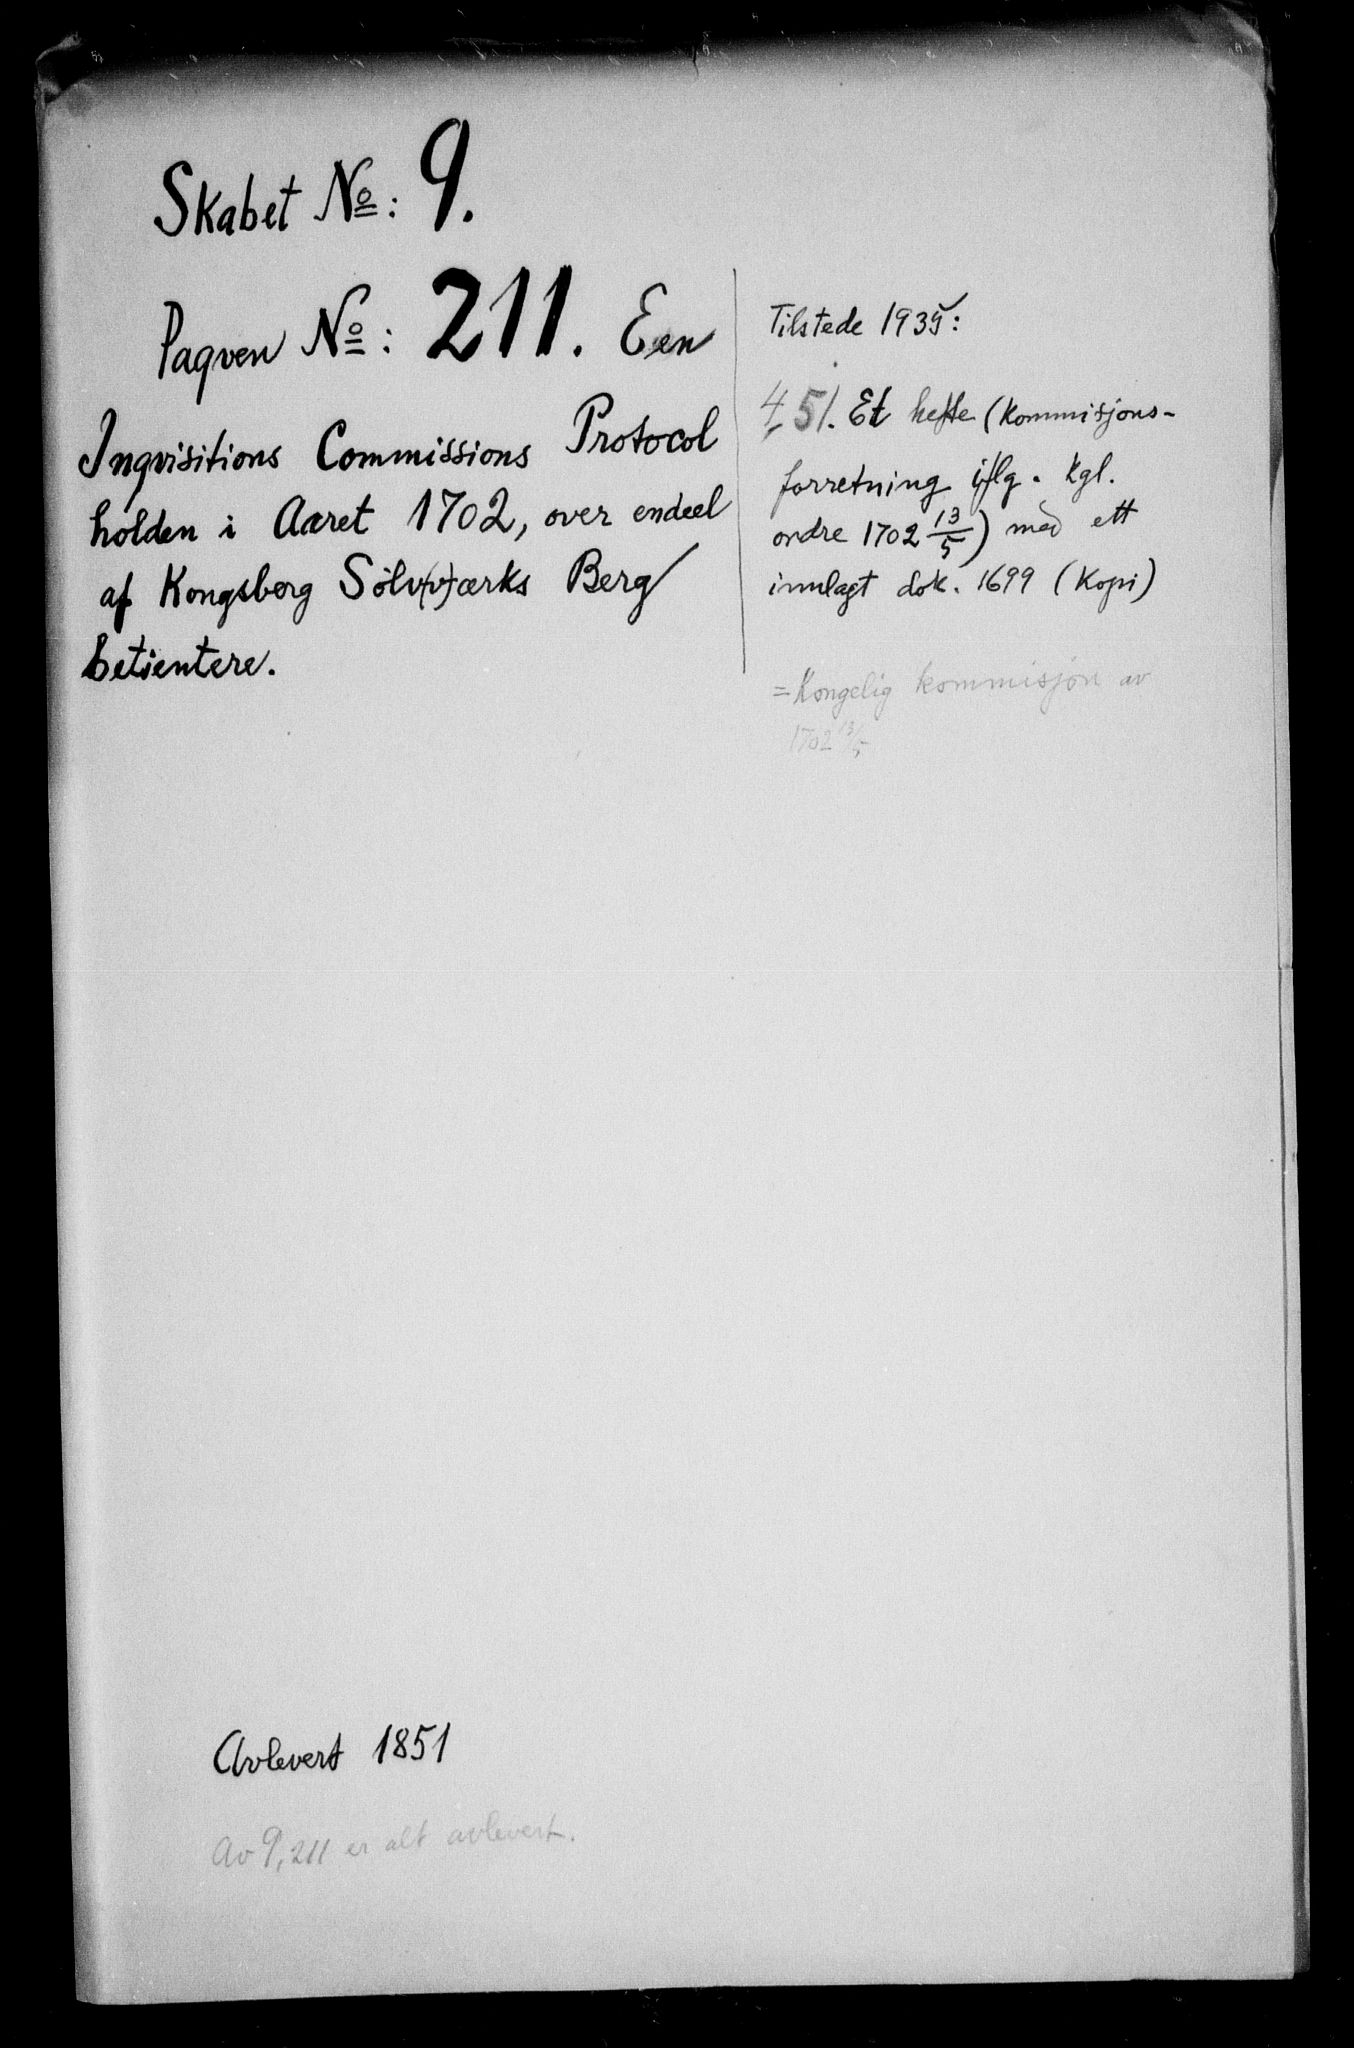 Skabet No: 9.
Paqven No: 211. Een
Inqvisitions Commissions Protocol
holden i Aaret 1702, over endeel
af Kongsberg Sølv(v)ærks Berg
betientere.
Tilstede 1935:
4,51. Et hefte (kommisjons-
forretning iflg. kgl.
ordre 1702 13/5) med ett
innlagt dok. 1699 (kopi)
= Kongelig kommisjon av
1702 13/5
Avlevert 1851
Av 9, 211 er alt avlevert.